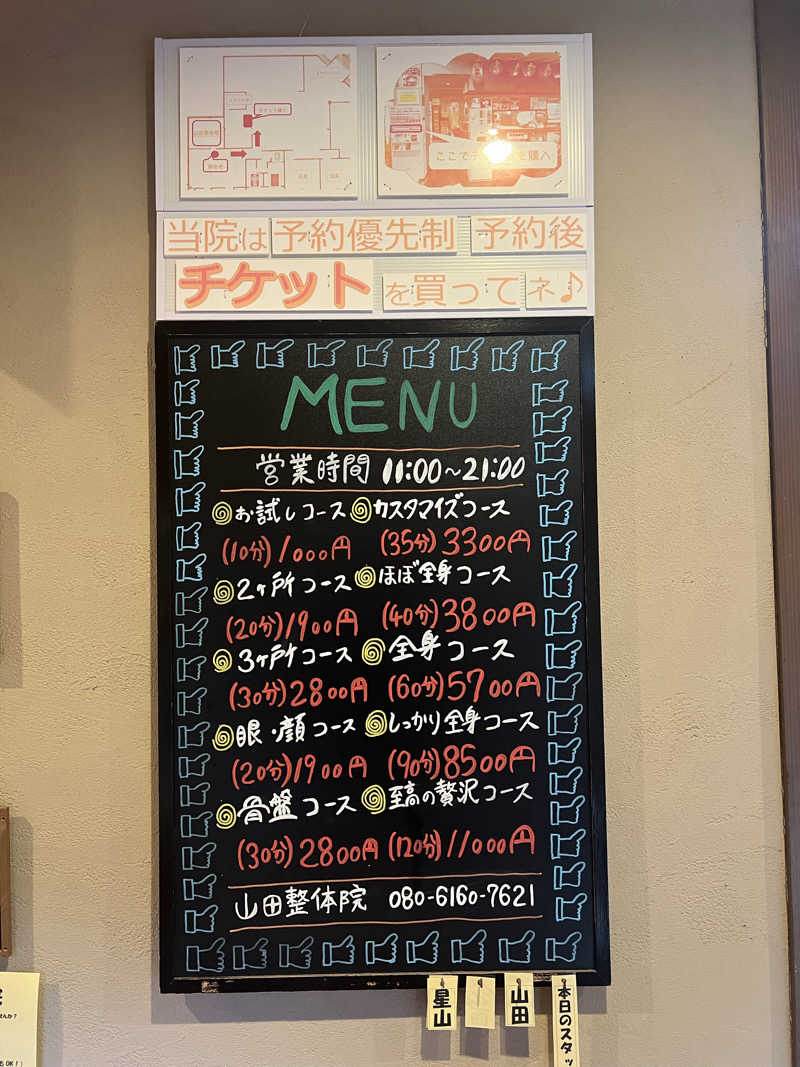 ここで
を購入
当院は 予約優先制 予約後
チケット を買ってネ♪
MENU
営業時間 11:00～21:00
お試しコース
(10分)1000円
2ヶ所コース
(20分)1900円
3ヶ所コース
(30分)2800円
眼・顔コース
(20分)1900円
骨盤コース
(30分)2800円
カスタマイズコース
(35分)3300円
ほぼ全身コース
(40分)3800円
全身コース
(60分)5700円
しっかり全身コース
(90分)8500円
至高の贅沢コース
(120分)11000円
山田整体院 080-6160-7621
星山
山田
本日のスタッ